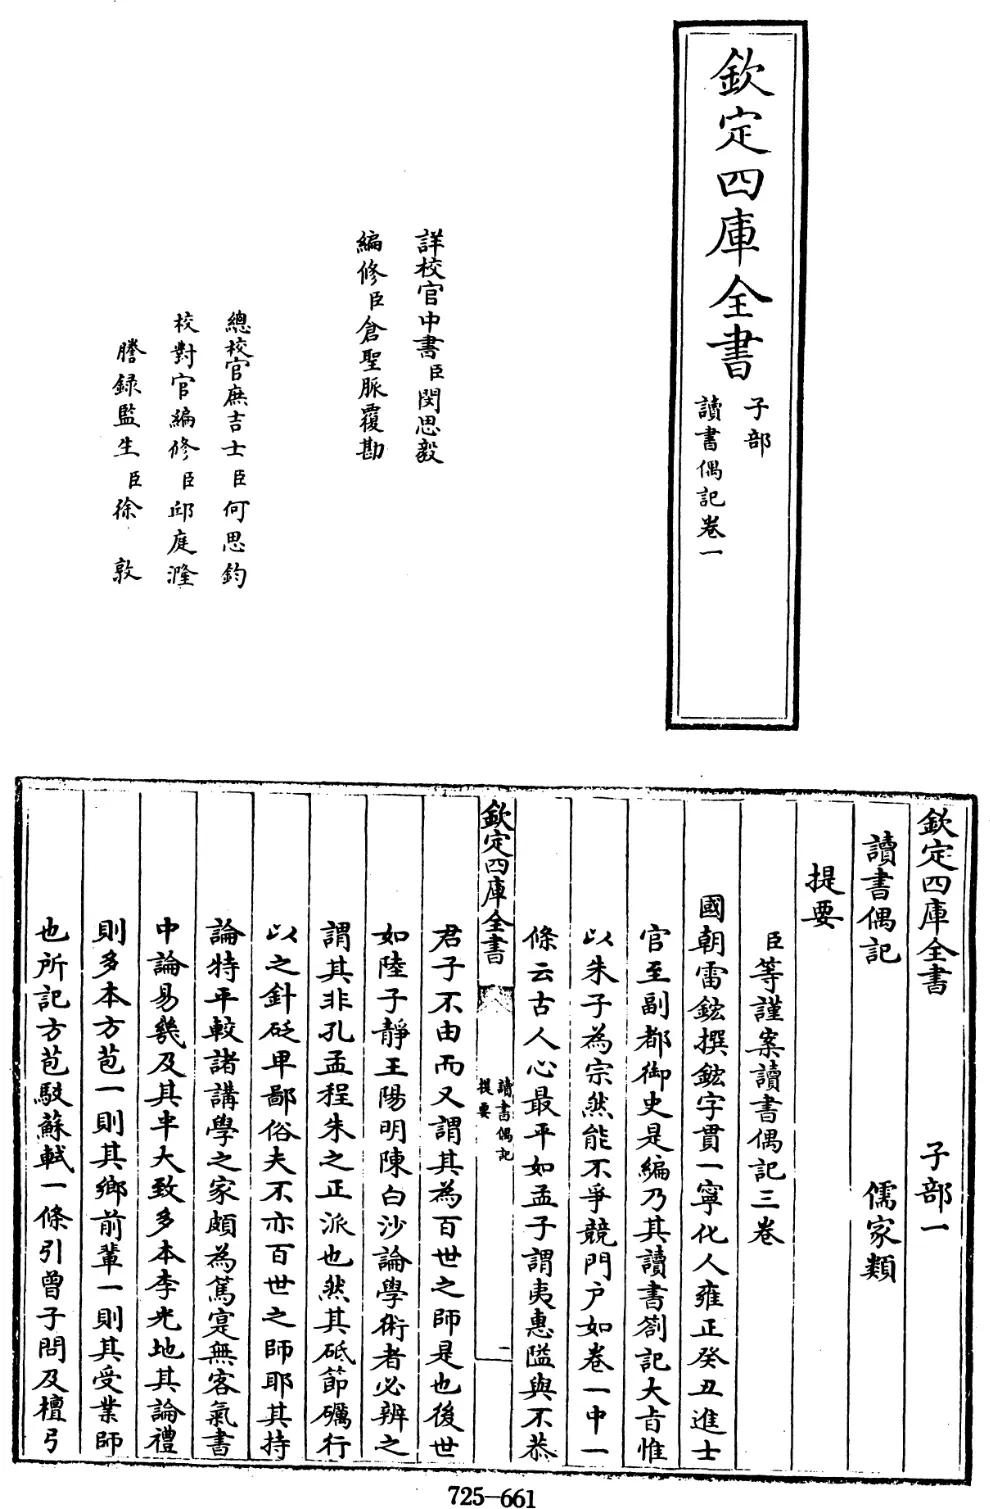 欽定四庫全書
子部
讀書偶記卷一
詳校官中書臣閔思毅
編修臣倉聖脈覆勘
總校官庶吉士臣何思鈞
校對官編修臣邱庭漋
謄録監生臣徐敦
欽定四庫全書 子部一
讀書偶記 儒家類
提要
臣等謹案讀書偶記三卷
國朝雷鋐撰鋐字貫一寧化人雍正癸丑進士
官至副都御史是編乃其讀書劄記大㫖惟
以朱子為宗然能不爭競門户如卷一中一
條云古人心最平如孟子謂夷惠隘與不恭
欽定四庫全書
讀書偶記
提要
一
君子不由而又謂其為百世之師是也後世
如陸子靜王陽明陳白沙論學術者必辨之
謂其非孔孟程朱之正派也然其砥節礪行
以之針砭卑鄙俗夫不亦百世之師耶其持
論特平較諸講學之家頗為篤寔無客氣書
中論易幾及其半大致多本李光地其論禮
則多本方苞一則其鄉前輩一則其受業師
也所記方苞駁蘇軾一條引曾子問及檀弓
725-661